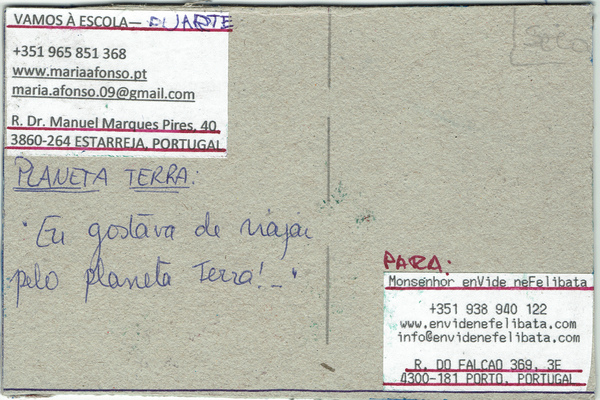 VAMOS À ESCOLA— DUARTE
+351 965 851 368
www.mariaafonso.pt
maria.afonso.09@gmail.com
R. Dr. Manuel Marques Pires, 40
3860-264 ESTARREJA, PORTUGAL
Selo
PLANETA TERRA:
"Eu gostava de viajar
pelo planeta Terra!..."
PARA:
Monsenhor enVide neFelibata
+351 938 940 122
www.envidenefelibata.com
info@envidenefelibata.com
R. DO FALCAO 369, 3E
4300-181 PORTO, PORTUGAL